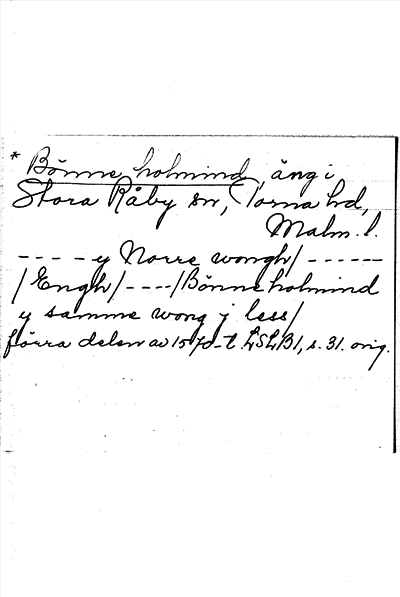 * Bönne holmind, äng i
Stora Råby sn, Torna hd,
Malm. l.
---- y Norre wongh/------
/Engh/----/Bönne holmind
y samme wong j less/
förra delen av 1570-t. LSLB1, s. 31. orig.